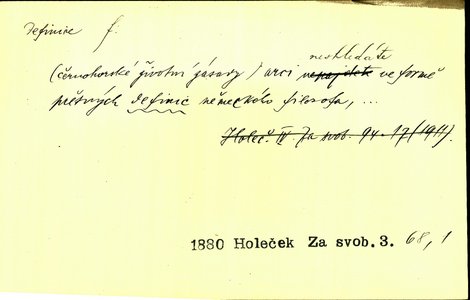 definice f.
neshledáte
(černohorské životní zásady) arci nenajdete ve formě
přesných definic německého filosofa, ...
Holeč. IV. Za svob. 94-17 (1911).
1880 Holeček Za svob. 3. 68,1